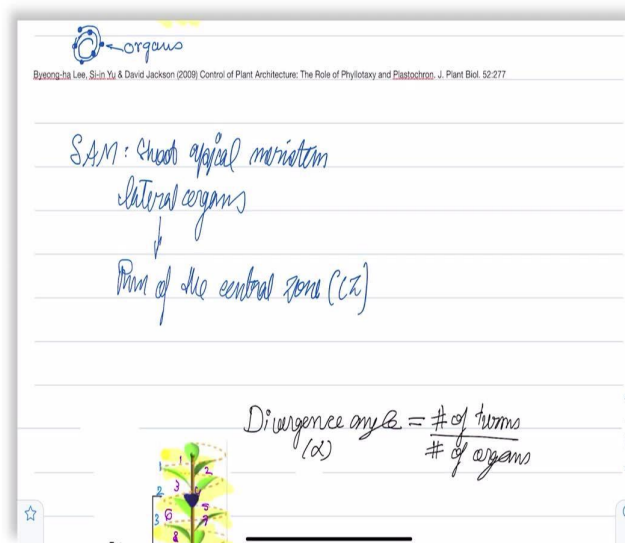 organs
Byeong-ha Lee, Si-in Yu & David Jackson (2009) Control of Plant Architecture: The Role of Phyllotaxy and Plastochron. J. Plant Biol. 52:277
SAM: Shoot apical meristem
lateral organs
↓
of the central zone (CZ)
Divergence angle = # of turns
(α) # of organs
1 1 2
2 3
3 6 5
7
8